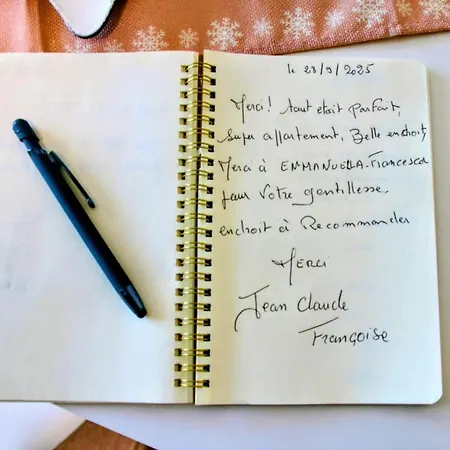 le 28/9/2025
Merci! tout etait parfait,
super appartement, Belle endroit,
Merci à EMMANUELLA-Francesca
pour Votre gentillesse.
endroit à Recommander
MERCI
Jean Claude
FRANÇOISE